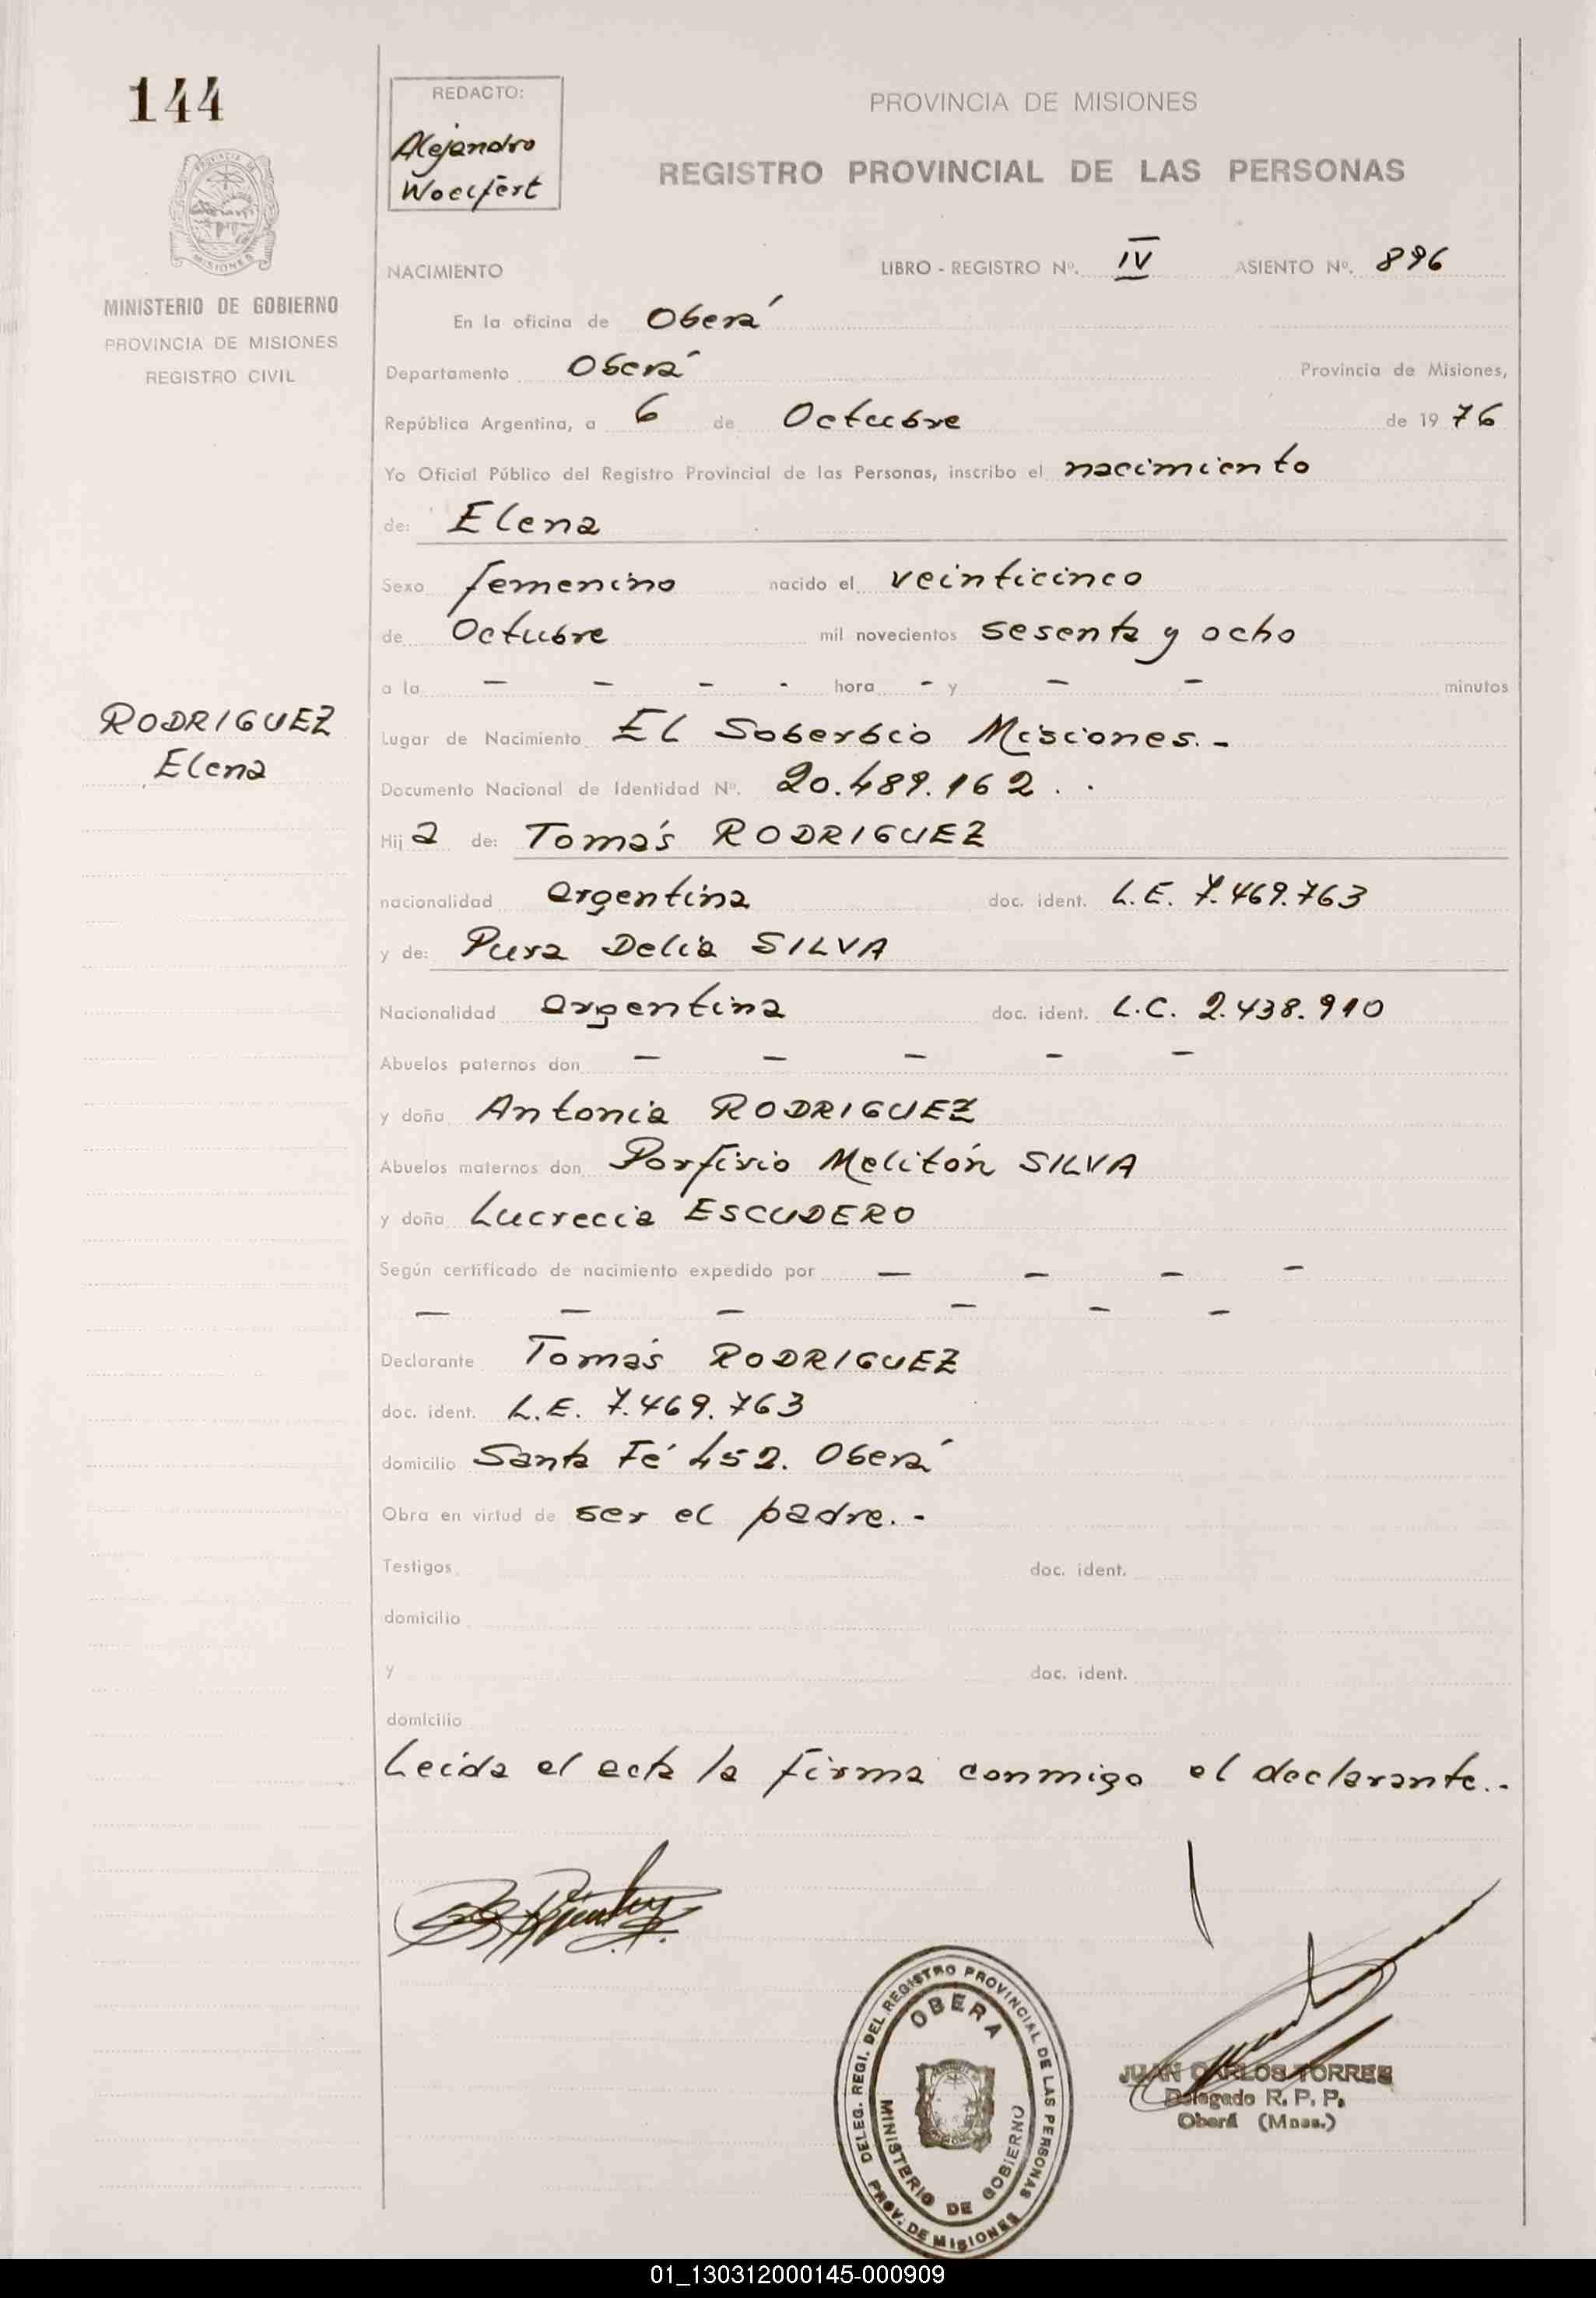 144
REDACTO:
Alejandro
Woelfert
PROVINCIA DE MISIONES
REGISTRO PROVINCIAL DE LAS PERSONAS
MISIONES
MINISTERIO DE GOBIERNO
PROVINCIA DE MISIONES
REGISTRO CIVIL
NACIMIENTO LIBRO - REGISTRO Nº. IV ASIENTO Nº. 896
En la oficina de Oberá
Departamento Oberá Provincia de Misiones,
República Argentina, a 6 de Octubre de 1976
Yo Oficial Público del Registro Provincial de las Personas, inscribo el nacimiento
de: Elena
Sexo femenino nacido el veinticinco
de Octubre mil novecientos sesenta y ocho
a la - - - - hora - y - - minutos
RODRIGUEZ
Elena
Lugar de Nacimiento El Soberbio Misiones.-
Documento Nacional de Identidad Nº. 20.489.162 . .
Hija de: Tomás RODRIGUEZ
nacionalidad argentina doc. ident. L.E. 7.469.763
y de: Pura Delia SILVA
Nacionalidad argentina doc. ident. L.C. 2.438.910
Abuelos paternos don - - - - -
y doña Antonia RODRIGUEZ
Abuelos maternos don Porfirio Melitón SILVA
y doña Lucrecia ESCUDERO
Según certificado de nacimiento expedido por - - - -
- - - - - -
Declarante Tomás RODRIGUEZ
doc. ident. L.E. 7.469.763
domicilio Santa Fé 452. Oberá
Obra en virtud de ser el padre.-
Testigos doc. ident.
domicilio
y doc. ident.
domicilio
Leida el acta la firma conmigo el declarante.-
DELEG. REGI. DEL REGISTRO PROVINCIAL DE LAS PERSONAS
OBERA
MINISTERIO DE GOBIERNO
PROV. DE MISIONES
JUAN CARLOS TORRES
Delegado R. P. P.
Oberá (Mnes.)
01_130312000145-000909